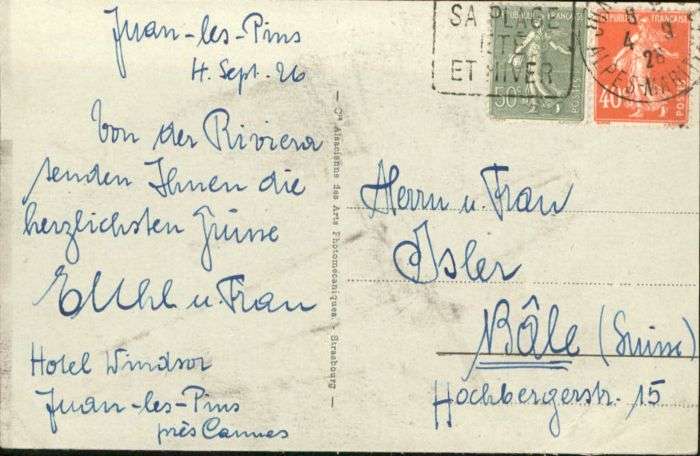 Juan-les-Pins
4. Sept. 26
Von der Riviera
senden Ihnen die
herzlichsten Grüsse
u. Frau
Hotel Windsor
Juan-les-Pins
près Cannes
Cie Alsacienne des Arts Photomécaniques - Strasbourg
SA PLAGE
ÉTÉ
ET HIVER
REPUBLIQUE FRANÇAISE
50c
POSTES
REPUBLIQUE FRANÇAISE
40c
POSTES
4 9
26
ALPES-MARIT
Herrn u. Frau
Isler
Bâle (Suisse)
Hochbergerstr. 15